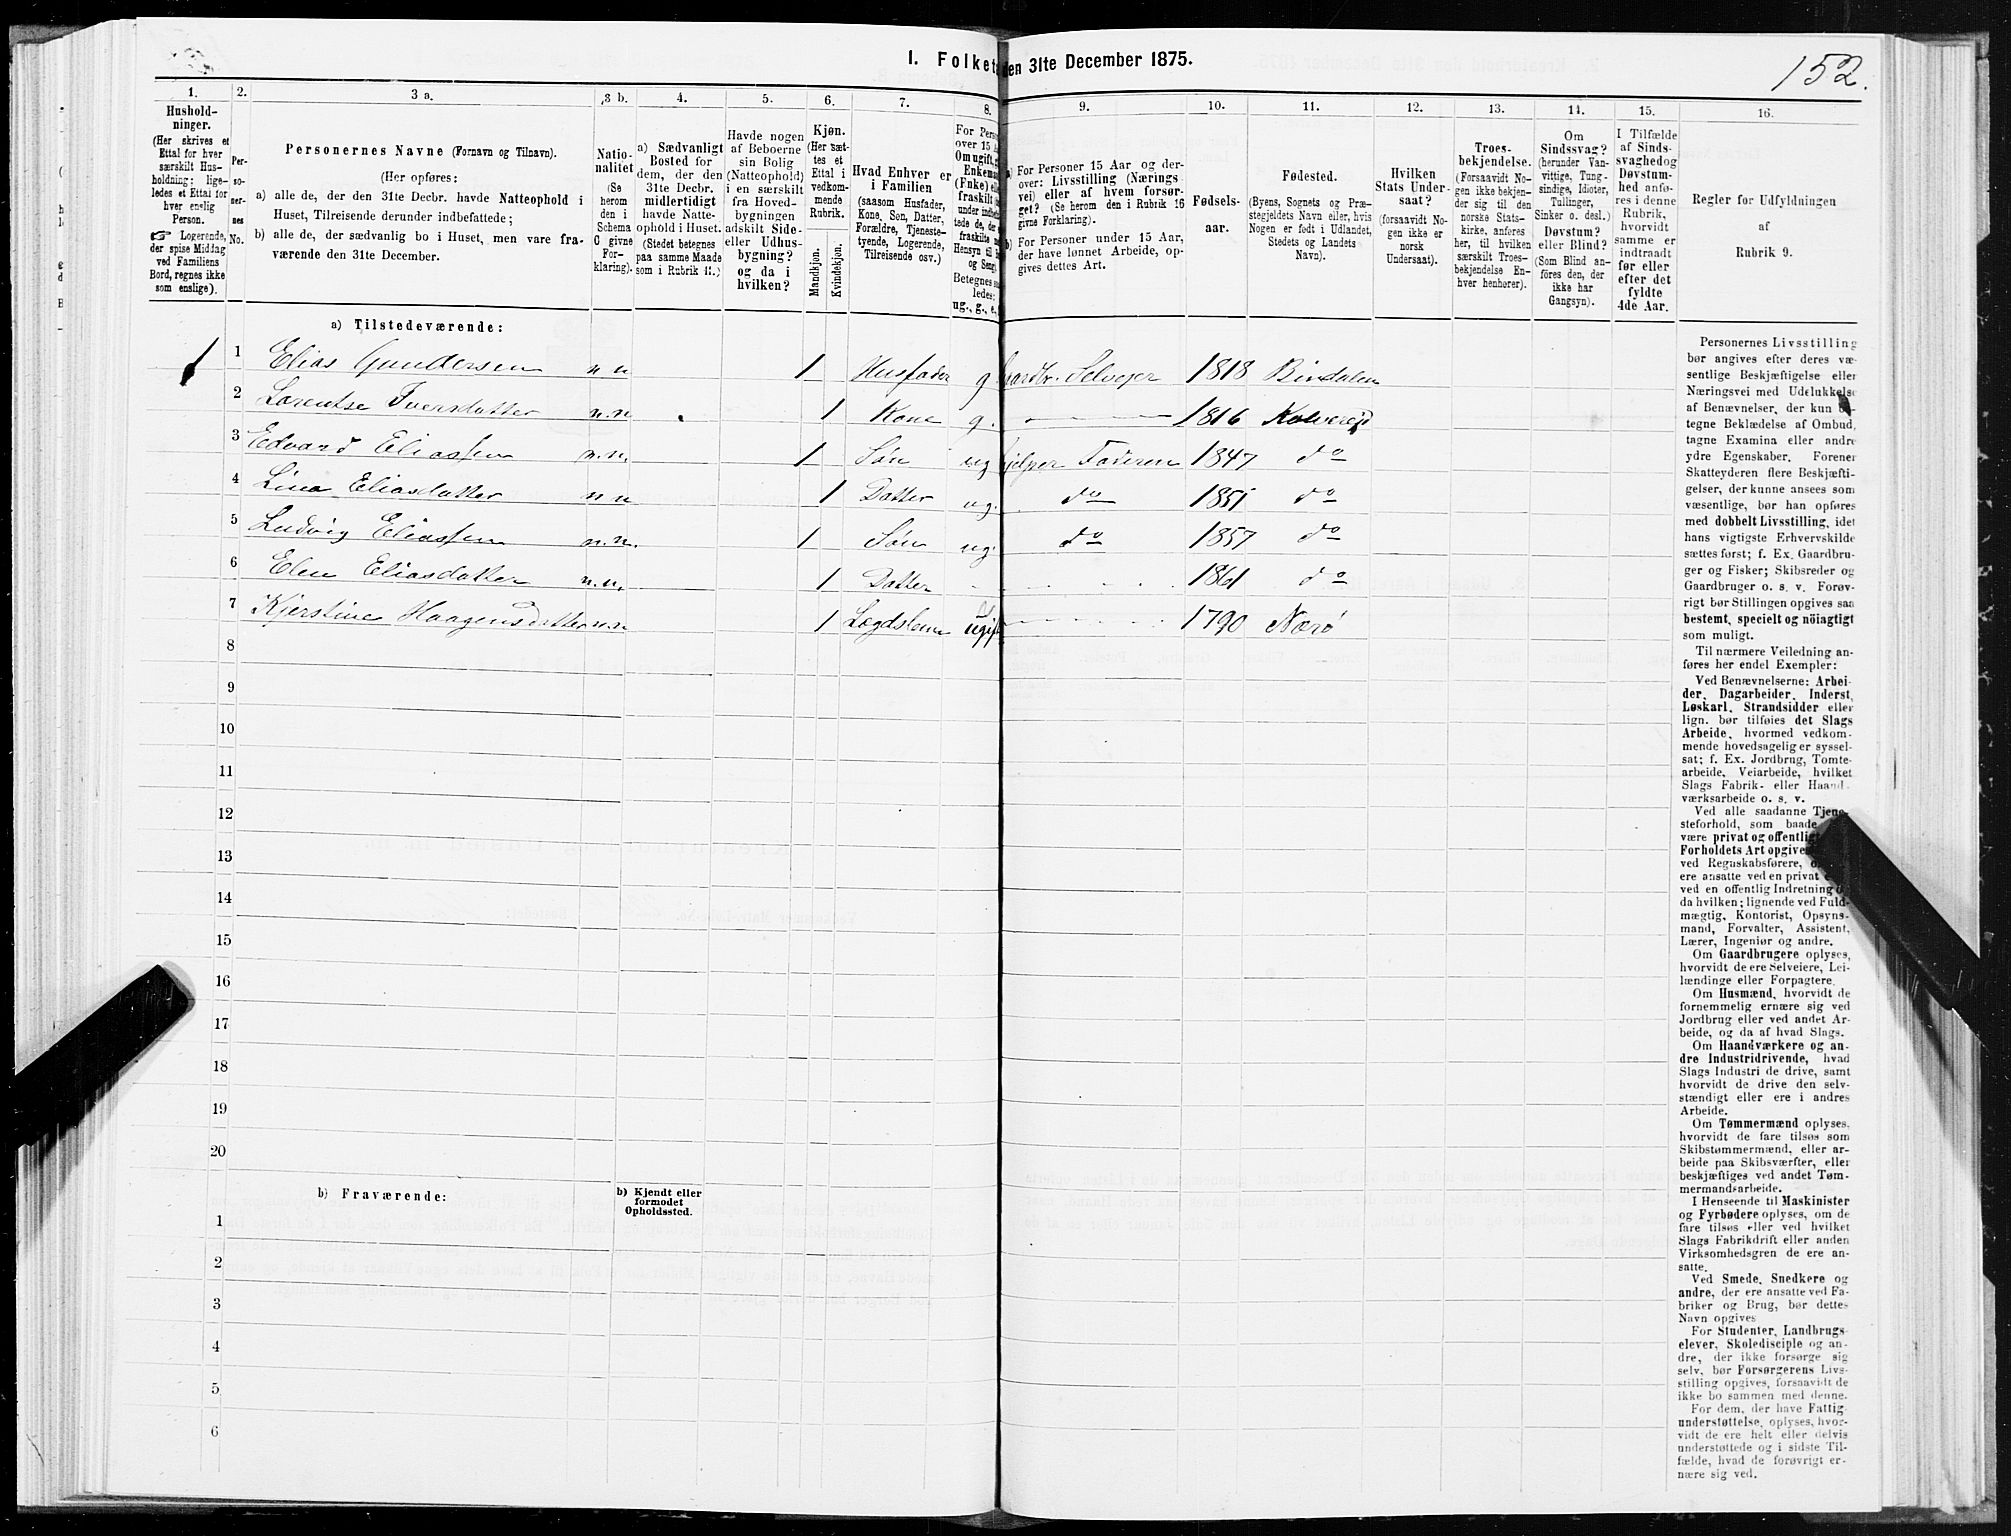 152.
1. Folket den 31te December 1875.
1. 2. 3 a. 3 b. 4. 5. 6. 7. 8. 9. 10. 11. 12. 13. 14. 15. 16.
Hushold-
ninger.
(Her skrives et
Ettal for hver
særskilt Hus-
holdning; lige-
ledes et Ettal for
hver enslig
Person.
☞ Logerende,
der spise Middag
ved Familiens
Bord, regnes ikke
som enslige).
Per-
so-
ner-
nes
No.
Personernes Navne (Fornavn og Tilnavn).
(Her opføres:
a) alle de, der den 31te Decbr. havde Natteophold i
Huset, Tilreisende derunder indbefattede;
b) alle de, der sædvanlig bo i Huset, men vare fra-
værende den 31te December.
Natio-
nalitet
(Se
herom
den i
Schema
C givne
For-
klaring).
a) Sædvanligt
Bosted for
dem, der den
31te Decbr.
midlertidigt
havde Natte-
ophold i Huset.
(Stedet betegnes
paa samme Maade
som i Rubrik 11.)
Havde nogen
af Beboerne
sin Bolig
(Natteophold)
i en særskilt
fra Hoved-
bygningen
adskilt Side-
eller Udhus-
bygning?
og da i
hvilken?
Kjøn.
(Her sæt-
tes et
Ettal i
vedkom-
mende
Rubrik.
Mandkjøn.
Kvindekjøn.
Hvad Enhver er
i Familien
(saasom Husfader,
Kone, Søn, Datter,
Forældre, Tjeneste-
tyende, Logerende,
Tilreisende osv.)
For Pers
over 15
Om ugift, g
Enkema
(Enke) el
fraskilt
under
tede, de,
fraskilte
Hensyn til
og Seng.
Betegnes
ledes:
ug., g., e,
a) For Personer 15 Aar og der-
over: Livsstilling (Nærings-
vei) eller af hvem forsør-
get? (Se herom den i Rubrik 16
givne Forklaring).
b) For Personer under 15 Aar,
der have lønnet Arbeide, op-
gives dettes Art.
Fødsels-
aar.
Fødested.
(Byens, Sognets og Præ-
stegjeldets Navn eller, hvis
Nogen er født i Udlandet,
Stedets og Landets
Navn).
Hvilken
Stats Under-
saat?
(forsaavidt No-
gen ikke er
norsk
Undersaat).
Troes-
bekjendelse.
(Forsaavidt No-
gen ikke bekjen-
der sig til den
norske Stats-
kirke, anføres
her, til hvilken
særskilt Troes-
bekjendelse En-
hver henhører).
Om
Sindssvag?
(herunder Van-
vittige, Tung-
sindige, Idioter,
Tullinger,
Sinker o. desl.)
Døvstum?
eller Blind?
(Som Blind an-
føres den, der
ikke har
Gangsyn).
I Tilfælde
af Sinds-
svaghed og
Døvstum-
hed anfø-
res i denne
Rubrik,
hvorvidt
samme er
indtraadt
før eller
efter det
fyldte
4de Aar.
Regler for Udfyldningen
af
Rubrik 9.
a) Tilstedeværende:
1 1 Elias Gundersen n n 1 Husfader g Gaardbr. Selveier 1818 Bindalen
2 Lorentse Iversdatter n.n 1 Kone g. 1816 Kolvereid
3 Edvard Eliassen n.n. 1 Søn ug hjelper Faderen 1847 do
4 Lina Eliasdatter n n 1 Datter ug. do 1851 do
5 Ludvig Eliassen n.n. 1 Søn ug. do 1857 do
6 Elen Eliasdatter n.n. 1 Datter - 1861 do
7 Kjerstine Haagensdatter n.n 1 Lægdslem ugift 1790 Nærø
8
9
10
11
12
13
14
15
16
17
18
19
20
b) Fraværende:
b) Kjendt eller
formodet
Opholdssted.
1
2
3
4
5
6
Personernes Livsstilling
bør angives efter deres væ-
sentlige Beskjæftigelse eller
Næringsvei med Udelukkelse
af Benævnelser, der kun be-
tegne Beklædelse af Ombud,
tagne Examina eller andre
ydre Egenskaber. Forener
Skatteyderen flere Beskjæfti-
gelser, der kunne ansees som
væsentlige, bør han opføres
med dobbelt Livsstilling, idet
hans vigtigste Erhvervskilde
sættes først; f. Ex. Gaardbru-
ger og Fisker; Skibsreder og
Gaardbruger o. s. v. Forøv-
rigt bør Stillingen opgives saa
bestemt, specielt og nöiagtigt
som muligt.
Til nærmere Veiledning an-
føres her endel Exempler:
Ved Benævnelserne: Arbei-
der, Dagarbeider, Inderst,
Løskarl, Strandsidder eller
lign. bør tilføies det Slags
Arbeide, hvormed vedkom-
mende hovedsagelig er syssel-
sat; f. Ex. Jordbrug, Tomte-
arbeide, Veiarbeide, hvilket
Slags Fabrik- eller Haand-
værksarbeide o. s. v.
Ved alle saadanne Tjene-
steforhold, som baade
være privat og offentligt
Forholdets Art opgives
ved Regnskabsførere,
ere ansatte ved en privat
ved en offentlig Indretning
da hvilken; lignende ved Fuld-
mægtig, Kontorist, Opsyns-
mand, Forvalter, Assistent,
Lærer, Ingeniør og andre.
Om Gaardbrugere oplyses,
hvorvidt de ere Selveiere, Lei-
lændinge eller Forpagtere.
Om Husmænd, hvorvidt de
fornemmelig ernære sig ved
Jordbrug eller ved andet Ar-
beide, og da af hvad Slags.
Om Haandværkere og an-
dre Industridrivende, hvad
Slags Industri de drive, samt
hvorvidt de drive den selv-
stændigt eller ere i andres
Arbeide.
Om Tømmermænd oplyses,
hvorvidt de fare tilsøs som
Skibstømmermænd, eller ar-
beide paa Skibsværfter, eller
beskjæftiges ved andet Tøm-
mermandsarbeide.
I Henseende til Maskinister
og Fyrbødere oplyses, om de
fare tilsøs eller ved hvilket
Slags Fabrikdrift eller anden
Virksomhedsgren de ere an-
satte.
Ved Smede, Snedkere og
andre, der ere ansatte ved Fa-
briker og Brug, bør dettes
Navn opgives
For Studenter, Landbrugs-
elever, Skoledisciple og an-
dre, der ikke forsørge sig
selv, bør Forsørgerens Livs-
stilling opgives, forsaavidt de
ikke bo sammen med denne.
For dem, der have Fattig-
understøttelse, oplyses, hvor-
vidt de ere helt eller delvis
understøttede og i sidste Til-
fælde, hvad de forøvrigt er-
nære sig ved.